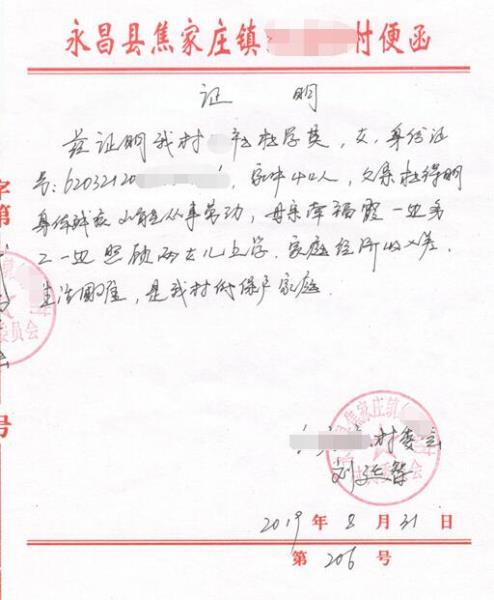 永昌县焦家庄镇 村便函
证 明
兹证明我村 社杜学英，女，身份证
号：62032120 ，家中四口人，父亲杜得明
身体残疾不能从事劳动，母亲李福霞一边务
工一边照顾两女儿上学，家庭经济收入差，
生活困难，是我村低保户家庭。
村委会
2019年8月31日
第206号
字第
号